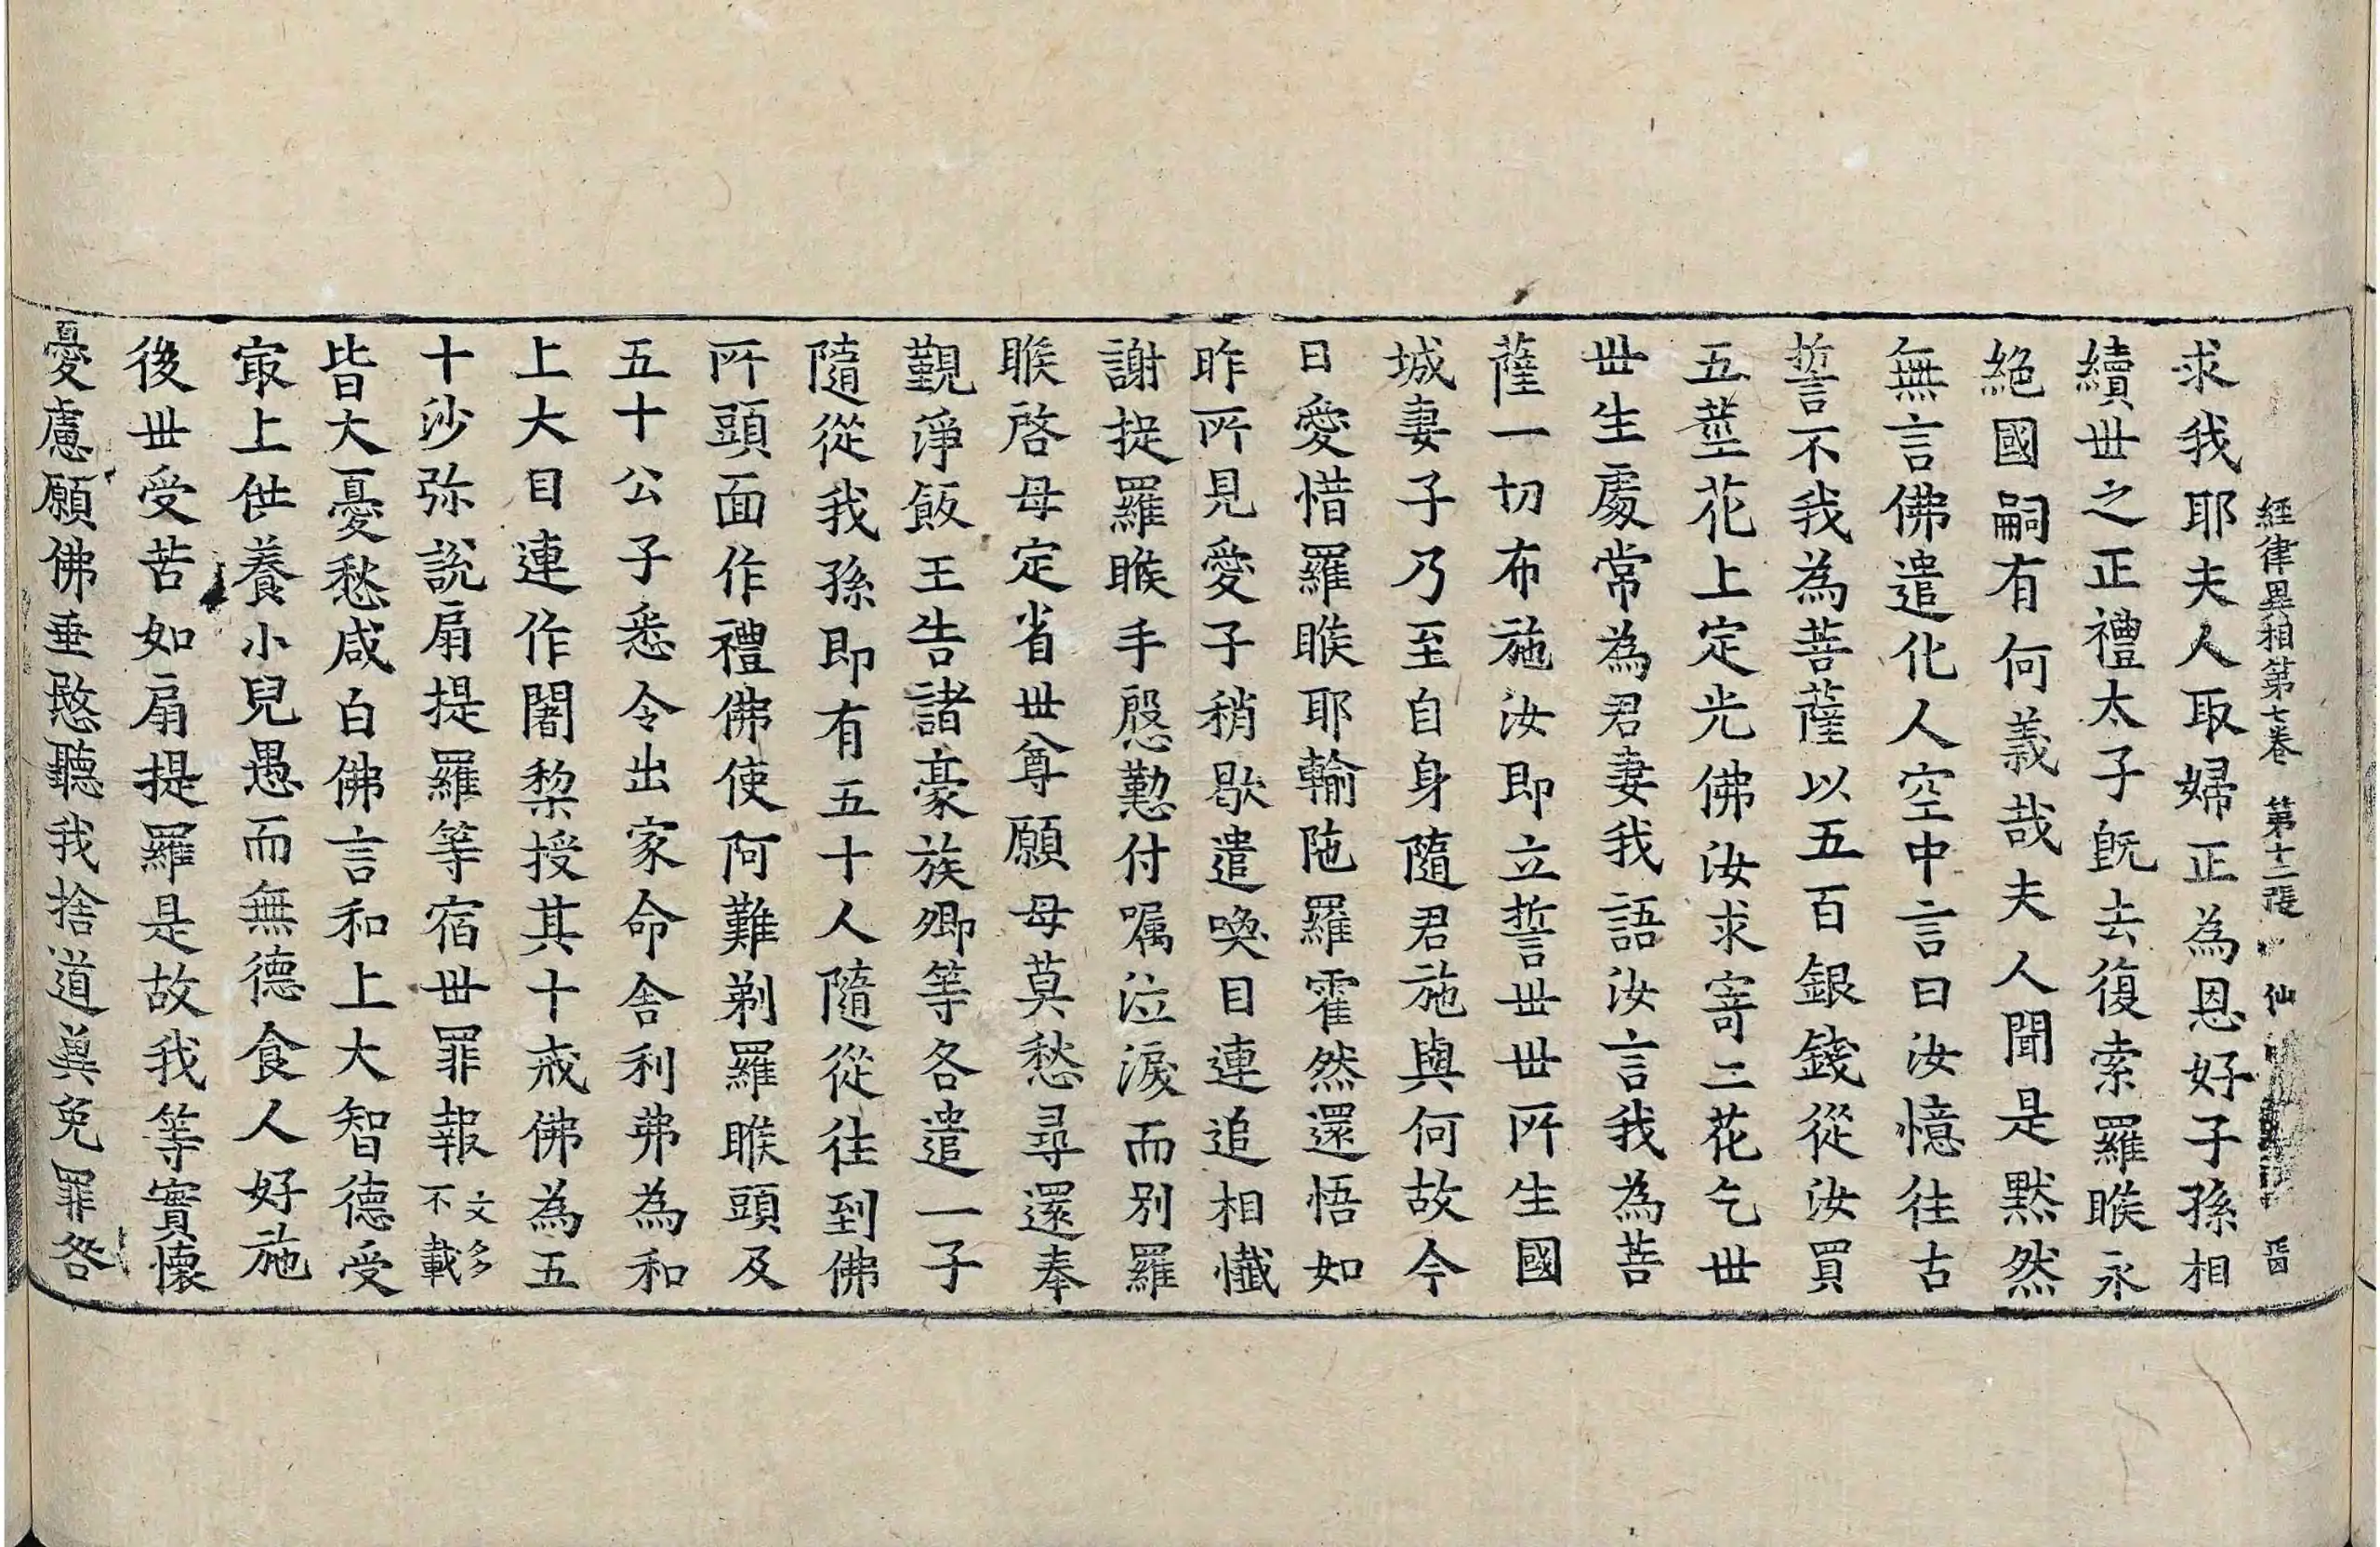 經律異相第七卷 第十二張 仙
求我耶夫人取婦正為恩好子孫相
續世之正禮太子旣去復索羅睺永
絕國嗣有何義哉夫人聞是默然
無言佛遣化人空中言曰汝憶往古
誓不我為菩薩以五百銀錢從汝買
五莖花上定光佛汝求寄二花乞世
世生處常為君妻我語汝言我為菩
薩一切布施汝即立誓世世所生國
城妻子乃至自身隨君施與何故今
日愛惜羅睺耶輸陁羅霍然還悟如
昨所見愛子稍歇遣喚目連追相懺
謝捉羅睺手慇懃付嘱泣淚而別羅
睺啓母定省世尊願母莫愁尋還奉
覲淨飯王告諸豪族卿等各遣一子
隨從我孫即有五十人隨從往到佛
所頭面作禮佛使阿難剃羅睺頭及
五十公子悉令出家命舍利弗為和
上大目連作闍梨授其十戒佛為五
十沙弥說扇提羅等宿世罪報文多不載
皆大憂愁咸白佛言和上大智德受
㝡上供養小兒愚而無德食人好施
後世受苦如扇提羅是故我等實懷
憂慮願佛垂愍聽我捨道冀免罪咎